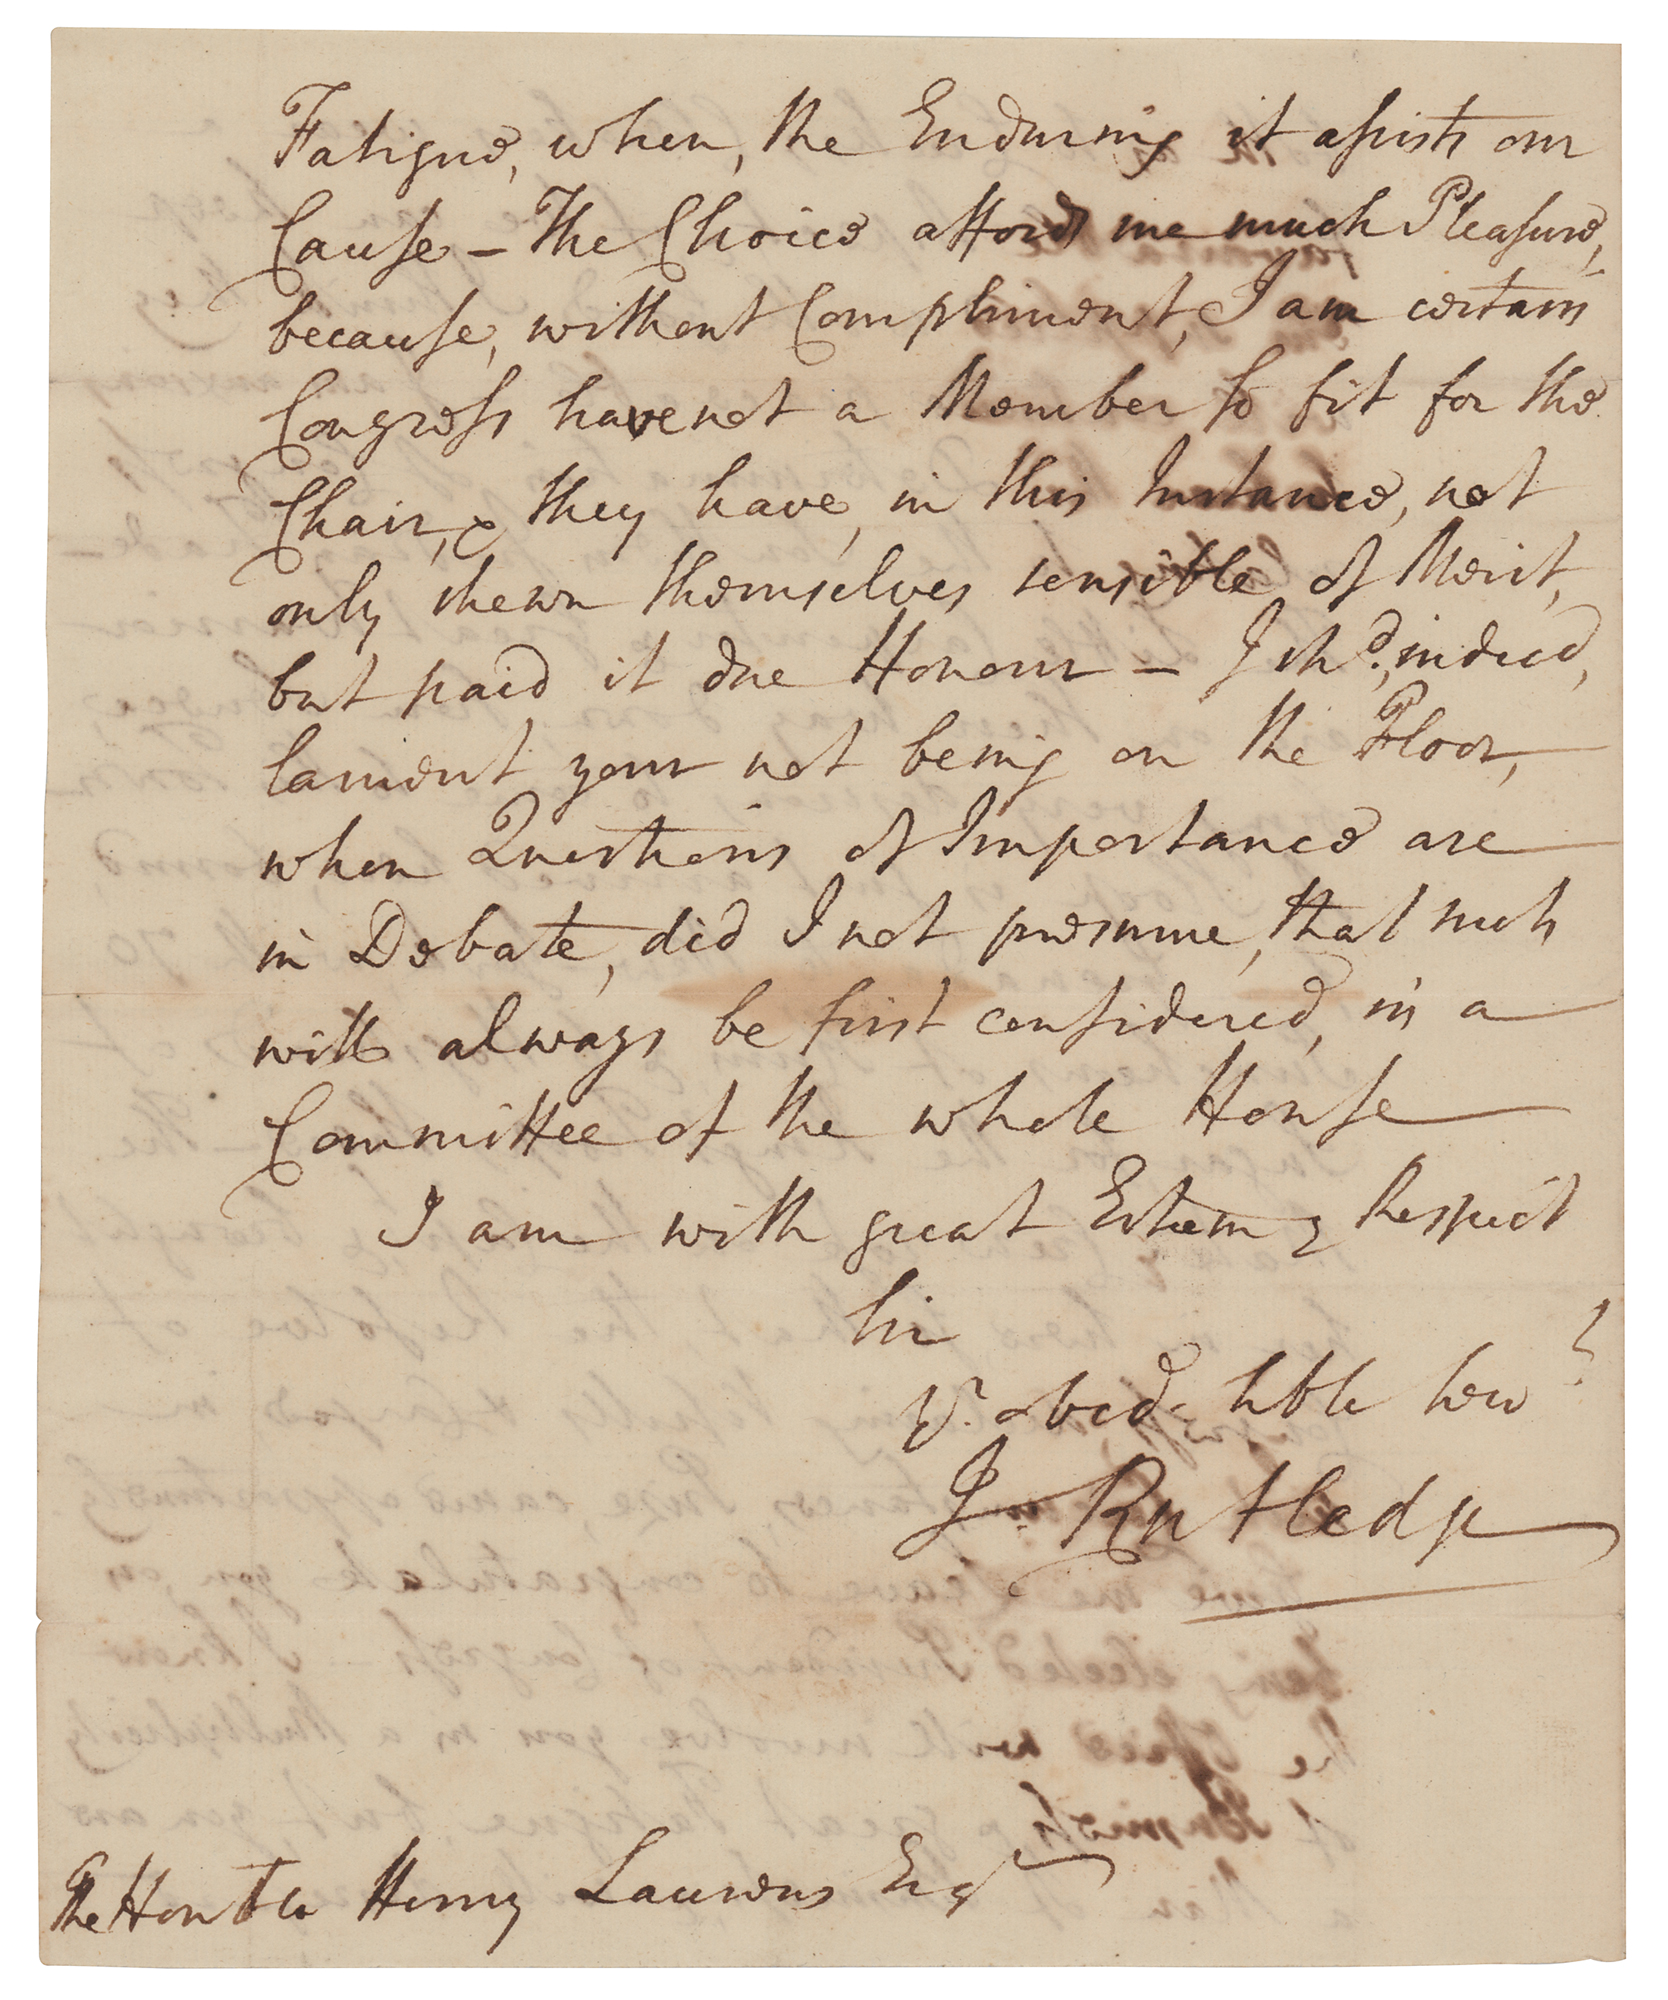 Fatigue, when, the Enduring it assists our
Cause – The Choice affords me much Pleasure,
because, without Compliment, I am certain
Congress have not a Member so fit for the
Chair, & they have, in this Instance, not
only shewn themselves sensible of Merit,
but paid it due Honour – I shd., indeed,
lament your not being on the Floor,
when Questions of Importance are
in Debate, did I not presume, that such
will always be first considered, in a
Committee of the whole House
I am with great Esteem & Respect
Sir
Yr. obed. hble Serv
J Rutledge
The Honble Henry Laurens Esqr